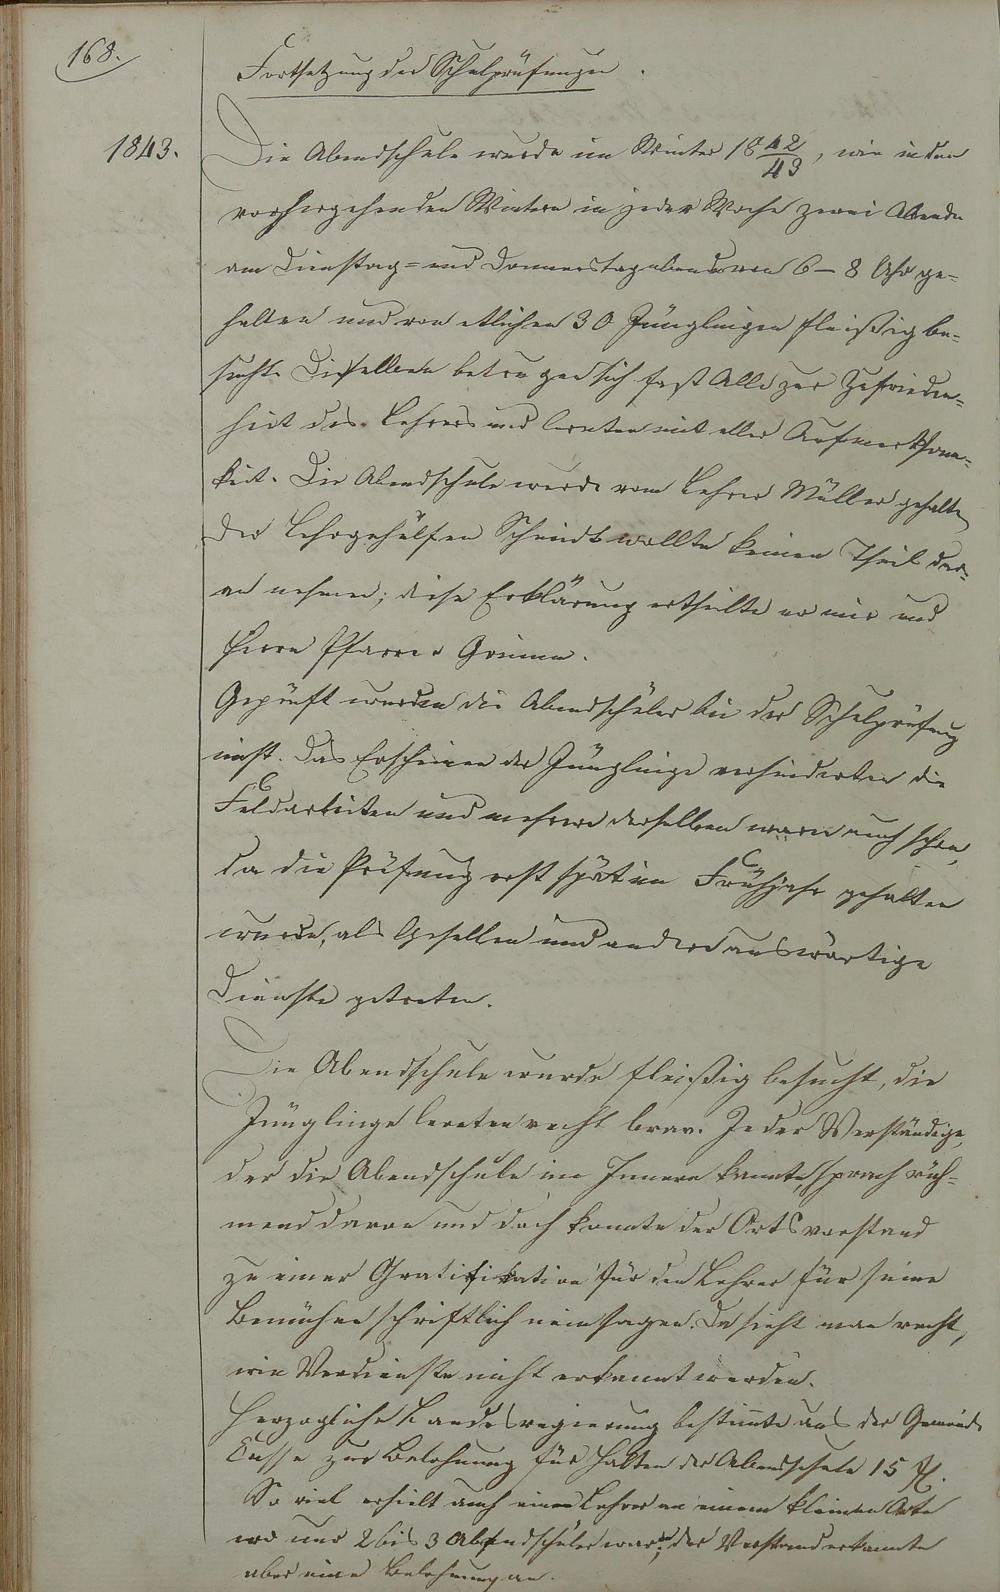 168.
Fortsetzung der Schulprüfungen.
1843.
Die Abendschule wurde im Winter 1842/43, wie in den
vorhergehenden Wintern in jeder Woche zwei Abende
am Dienstag= und Donnerstagabend von 6–8 Uhr ge=
halten und von etlichen 30 Jünglingen fleißig be=
sucht. Dieselben betrugen sich fast Alle zur Zufrieden=
heit des Lehrers und lernten mit aller Aufmerksam=
keit. Die Abendschule wurde vom Lehrer Müller gehalten
Der Lehrgehülfen Schmidt wollte keinen Theil dar=
an nehmen; diese Erklärung ertheilte er mir und
Herrn Pfarrer Grimm.
Geprüft wurden die Abendschüler bei der Schulprüfung
nicht. Das Erscheinen der Jünglinge verhinderten die
Feldarbeiten und mehrere derselben waren auch schon,
da die Prüfung erst spät im Frühjahr gehalten
wurde, als Gesellen und andere auswärtige
Dienste getreten.
Die Abendschule wurde fleißig besucht, die
Jünglinge lernten recht brav. Jeder Verständige,
der die Abendschule im Innern kannte, sprach rüh=
mend davon und doch konnte der Ortsvorstand
zu einer Gratifikation für den Lehrer für seine
Bemühen schriftlich nein sagen. Da sieht man recht,
wie Verdienste nicht erkannt werden.
Herzogliche Landesregierung bestimmte aus der Gemeinde
Casse zur Belohnung für Halten der Abendschule 15 fl.
So viel erhielt auch einer Lehrer an einem kleinen Orte
wo nur 2 bis 3 Abendschüler waren; der Vorstand erkannte
aber eine Belohnung an.